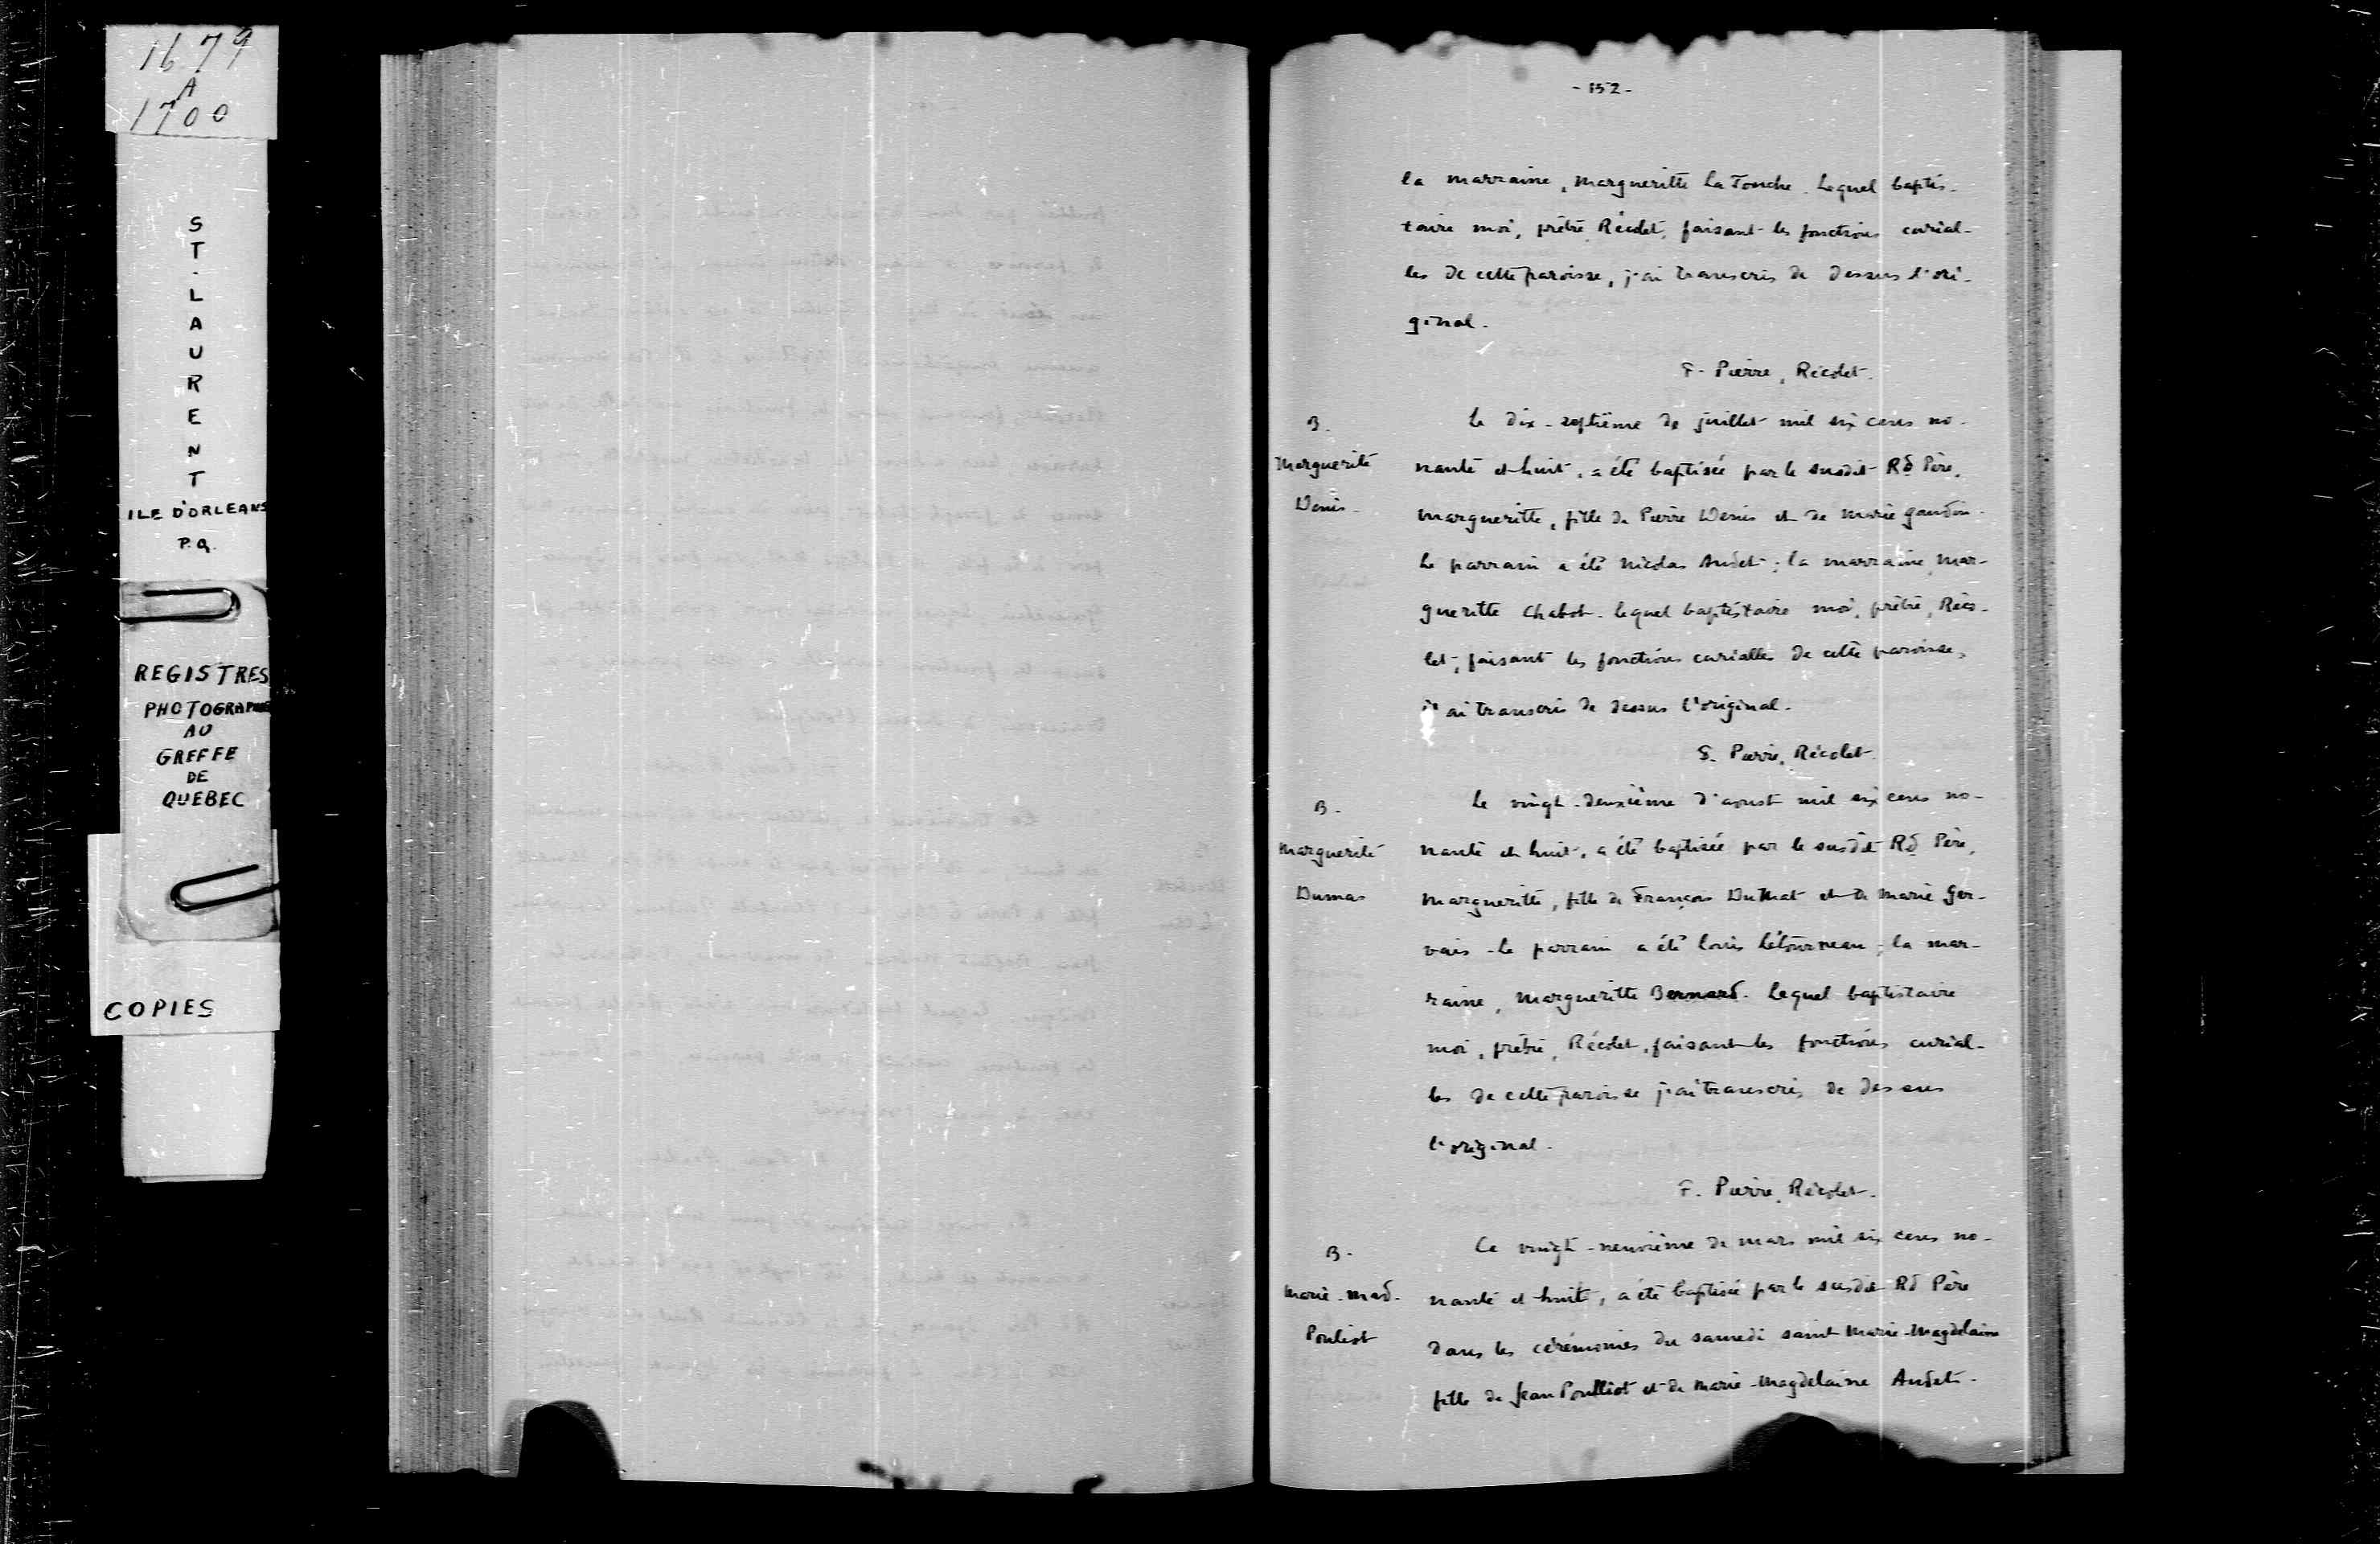 1679
A
1700
ST-LAURENT
ILE D'ORLEANS
P.Q.
REGISTRES
PHOTOGRAPHIES
AU
GREFFE
DE
QUEBEC
COPIES
- 152 -
la marraine, Margueritte La Touche. Lequel baptis-
taire moi, prêtre Récolet, faisant les fonctions curial-
les de cette paroisse, j'ai transcris de dessus l'ori-
ginal.
F. Pierre, Récolet.
B.
Marguerite
Denis.
Le dix-septième de juillet mil six cens no-
nante et huit, a été baptisée par le susdit Rd Père,
Margueritte, fille de Pierre Denis et de Marie Gaudin.
Le parrain a été Nicolas Audet; la marraine, Mar-
gueritte Chabot. Lequel baptistaire moi, prêtre, Réco-
let, faisant les fonctions curialles de cette paroisse,
j'ai transcris de dessus l'original.
F. Pierre, Récolet.
B.
Marguerite
Dumas
Le vingt-deuxième d'aoust mil six cens no-
nante et huit, a été baptisée par le susdit Rd Père,
Margueritte, fille de François DuMat et de Marie Ger-
vais. Le parrain a été Louis Létourneau; la mar-
raine, Margueritte Bernard. Lequel baptistaire
moi, prêtre, Récolet, faisant les fonctions curial-
les de cette paroisse j'ai transcris de dessus
l'original.
F. Pierre, Récolet.
B.
Marie-Mad.
Pouliot
Ce vingt-neuvième de mars mil six cens no-
nante et huit, a été baptisée par le susdit Rd Père
dans les cérémonies du samedi saint Marie-Magdelaine
fille de Jean Poulliot et de Marie-Magdelaine Audet.